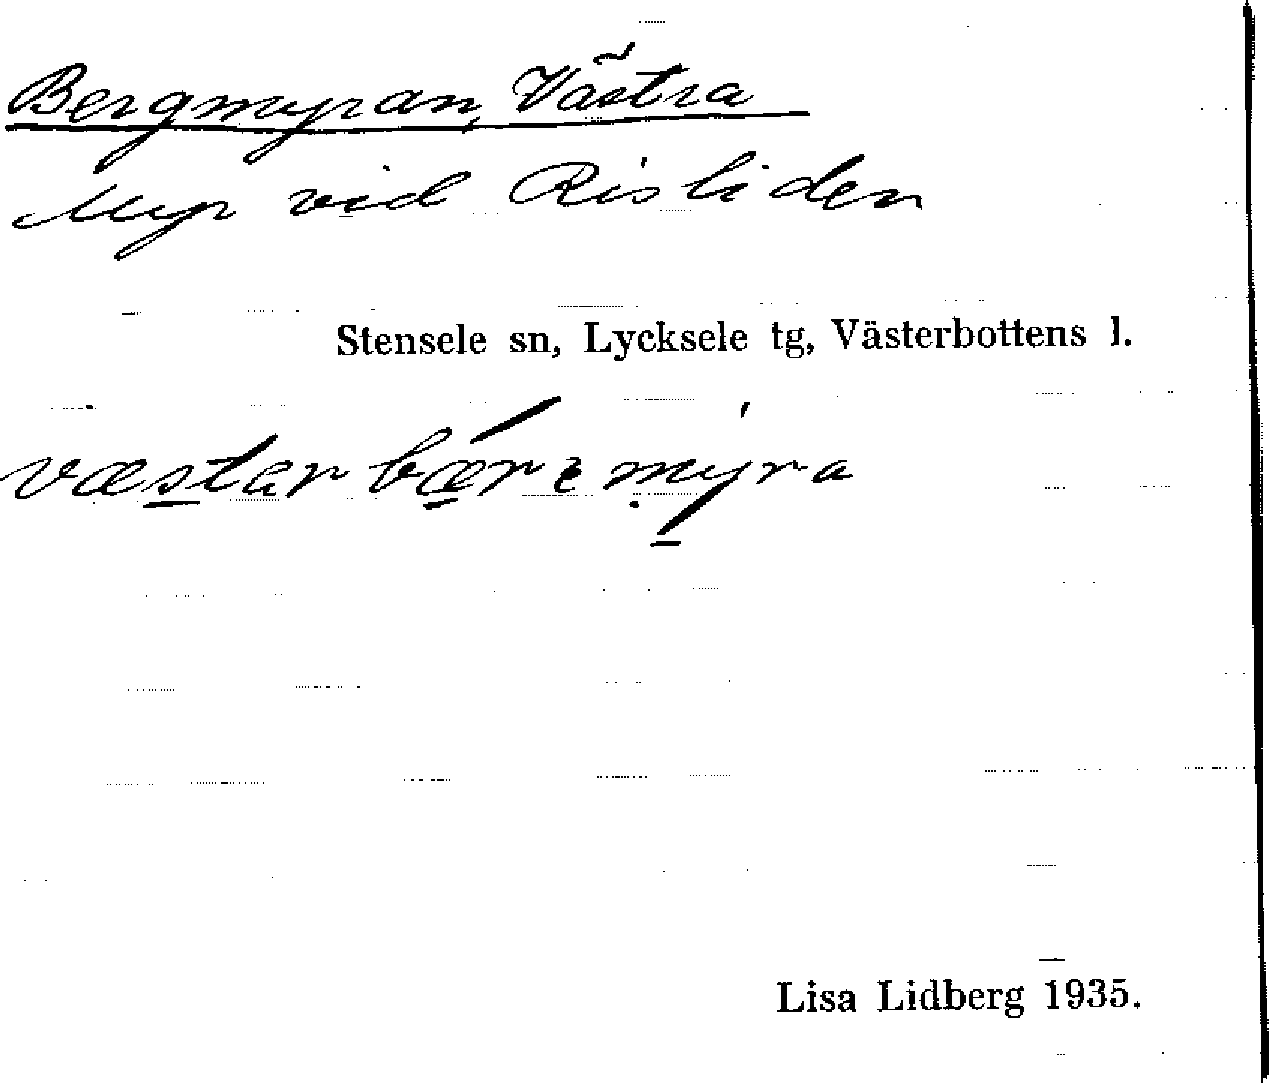 Bergmyran, Västra
Myr vid Risliden
Stensele sn, Lycksele tg, Västerbottens l.
Lisa Lidberg 1935.